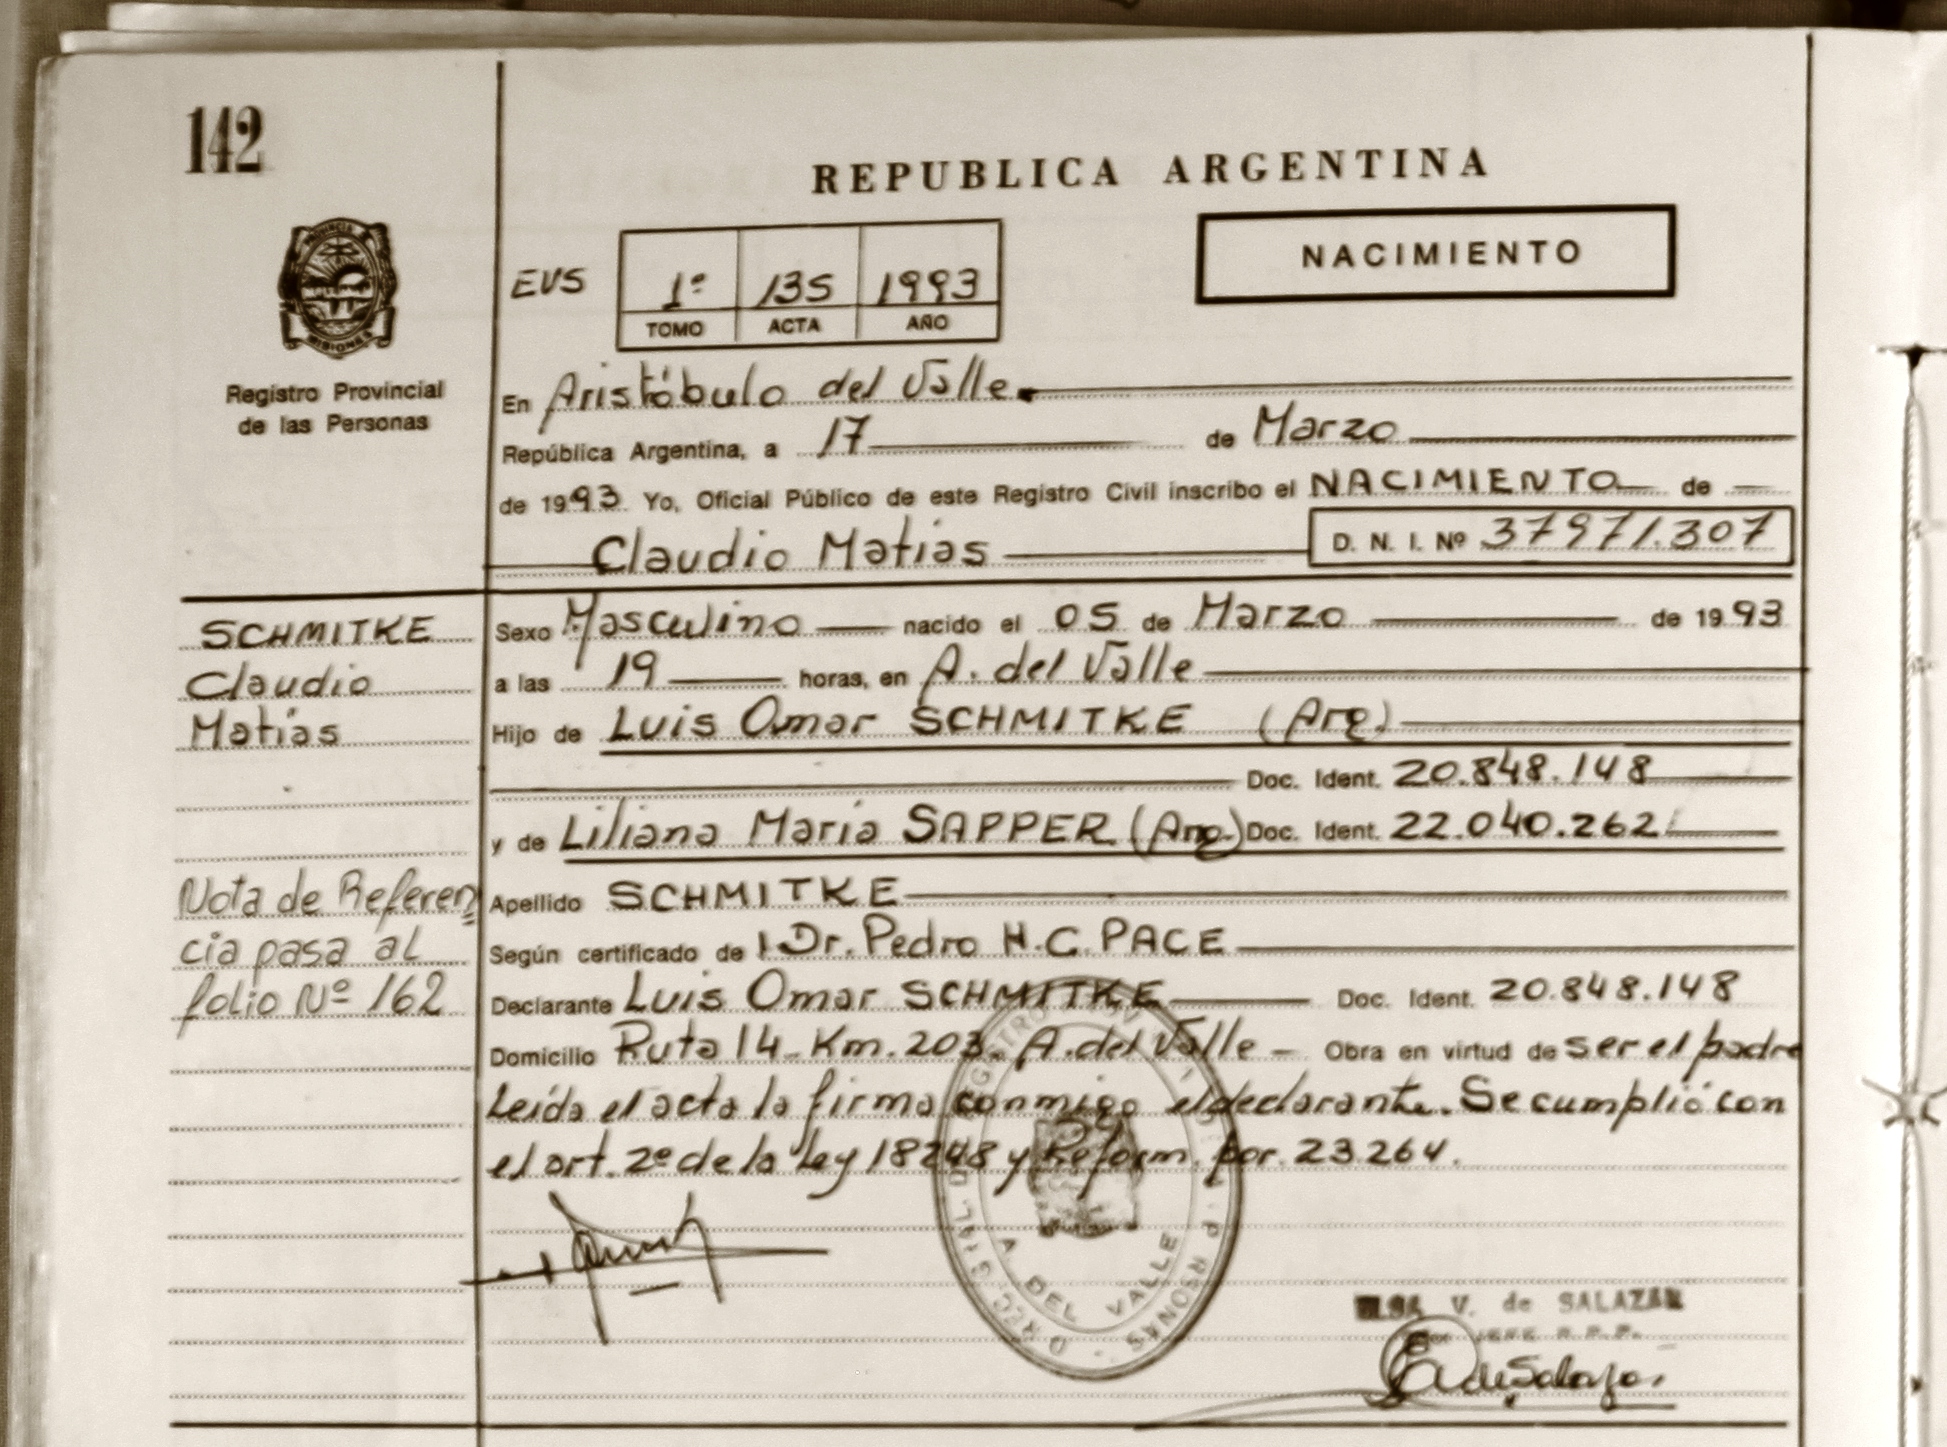 142
REPUBLICA ARGENTINA
NACIMIENTO
PROVINCIA DE
MISIONES
Registro Provincial
de las Personas
EVS
1º 135 1993
TOMO ACTA AÑO
En Aristóbulo del Valle.
República Argentina, a 17 de Marzo
de 1993 Yo, Oficial Público de este Registro Civil inscribo el NACIMIENTO de
Claudio Matías D. N. I. Nº 37971.307
SCHMITKE
Claudio
Matías
Sexo Masculino nacido el 05 de Marzo de 1993
a las 19 horas, en A. del Valle
Hijo de Luis Omar SCHMITKE (Arg.)
Doc. Ident. 20.848.148
y de Liliana María SAPPER (Arg.) Doc. Ident. 22.040.262
Nota de Referen
cia pasa al
folio Nº 162
Apellido SCHMITKE
Según certificado de Dr. Pedro H.C. PACE
Declarante Luis Omar SCHMITKE Doc. Ident. 20.848.148
Domicilio Ruta 14 Km. 203. A. del Valle - Obra en virtud de ser el padre
Leída el acta la firma conmigo el declarante. Se cumplió con
el art. 2º de la Ley 18248 y Reform. por 23264.
A. DEL VALLE
V. de SALAZAR
E de Salazar